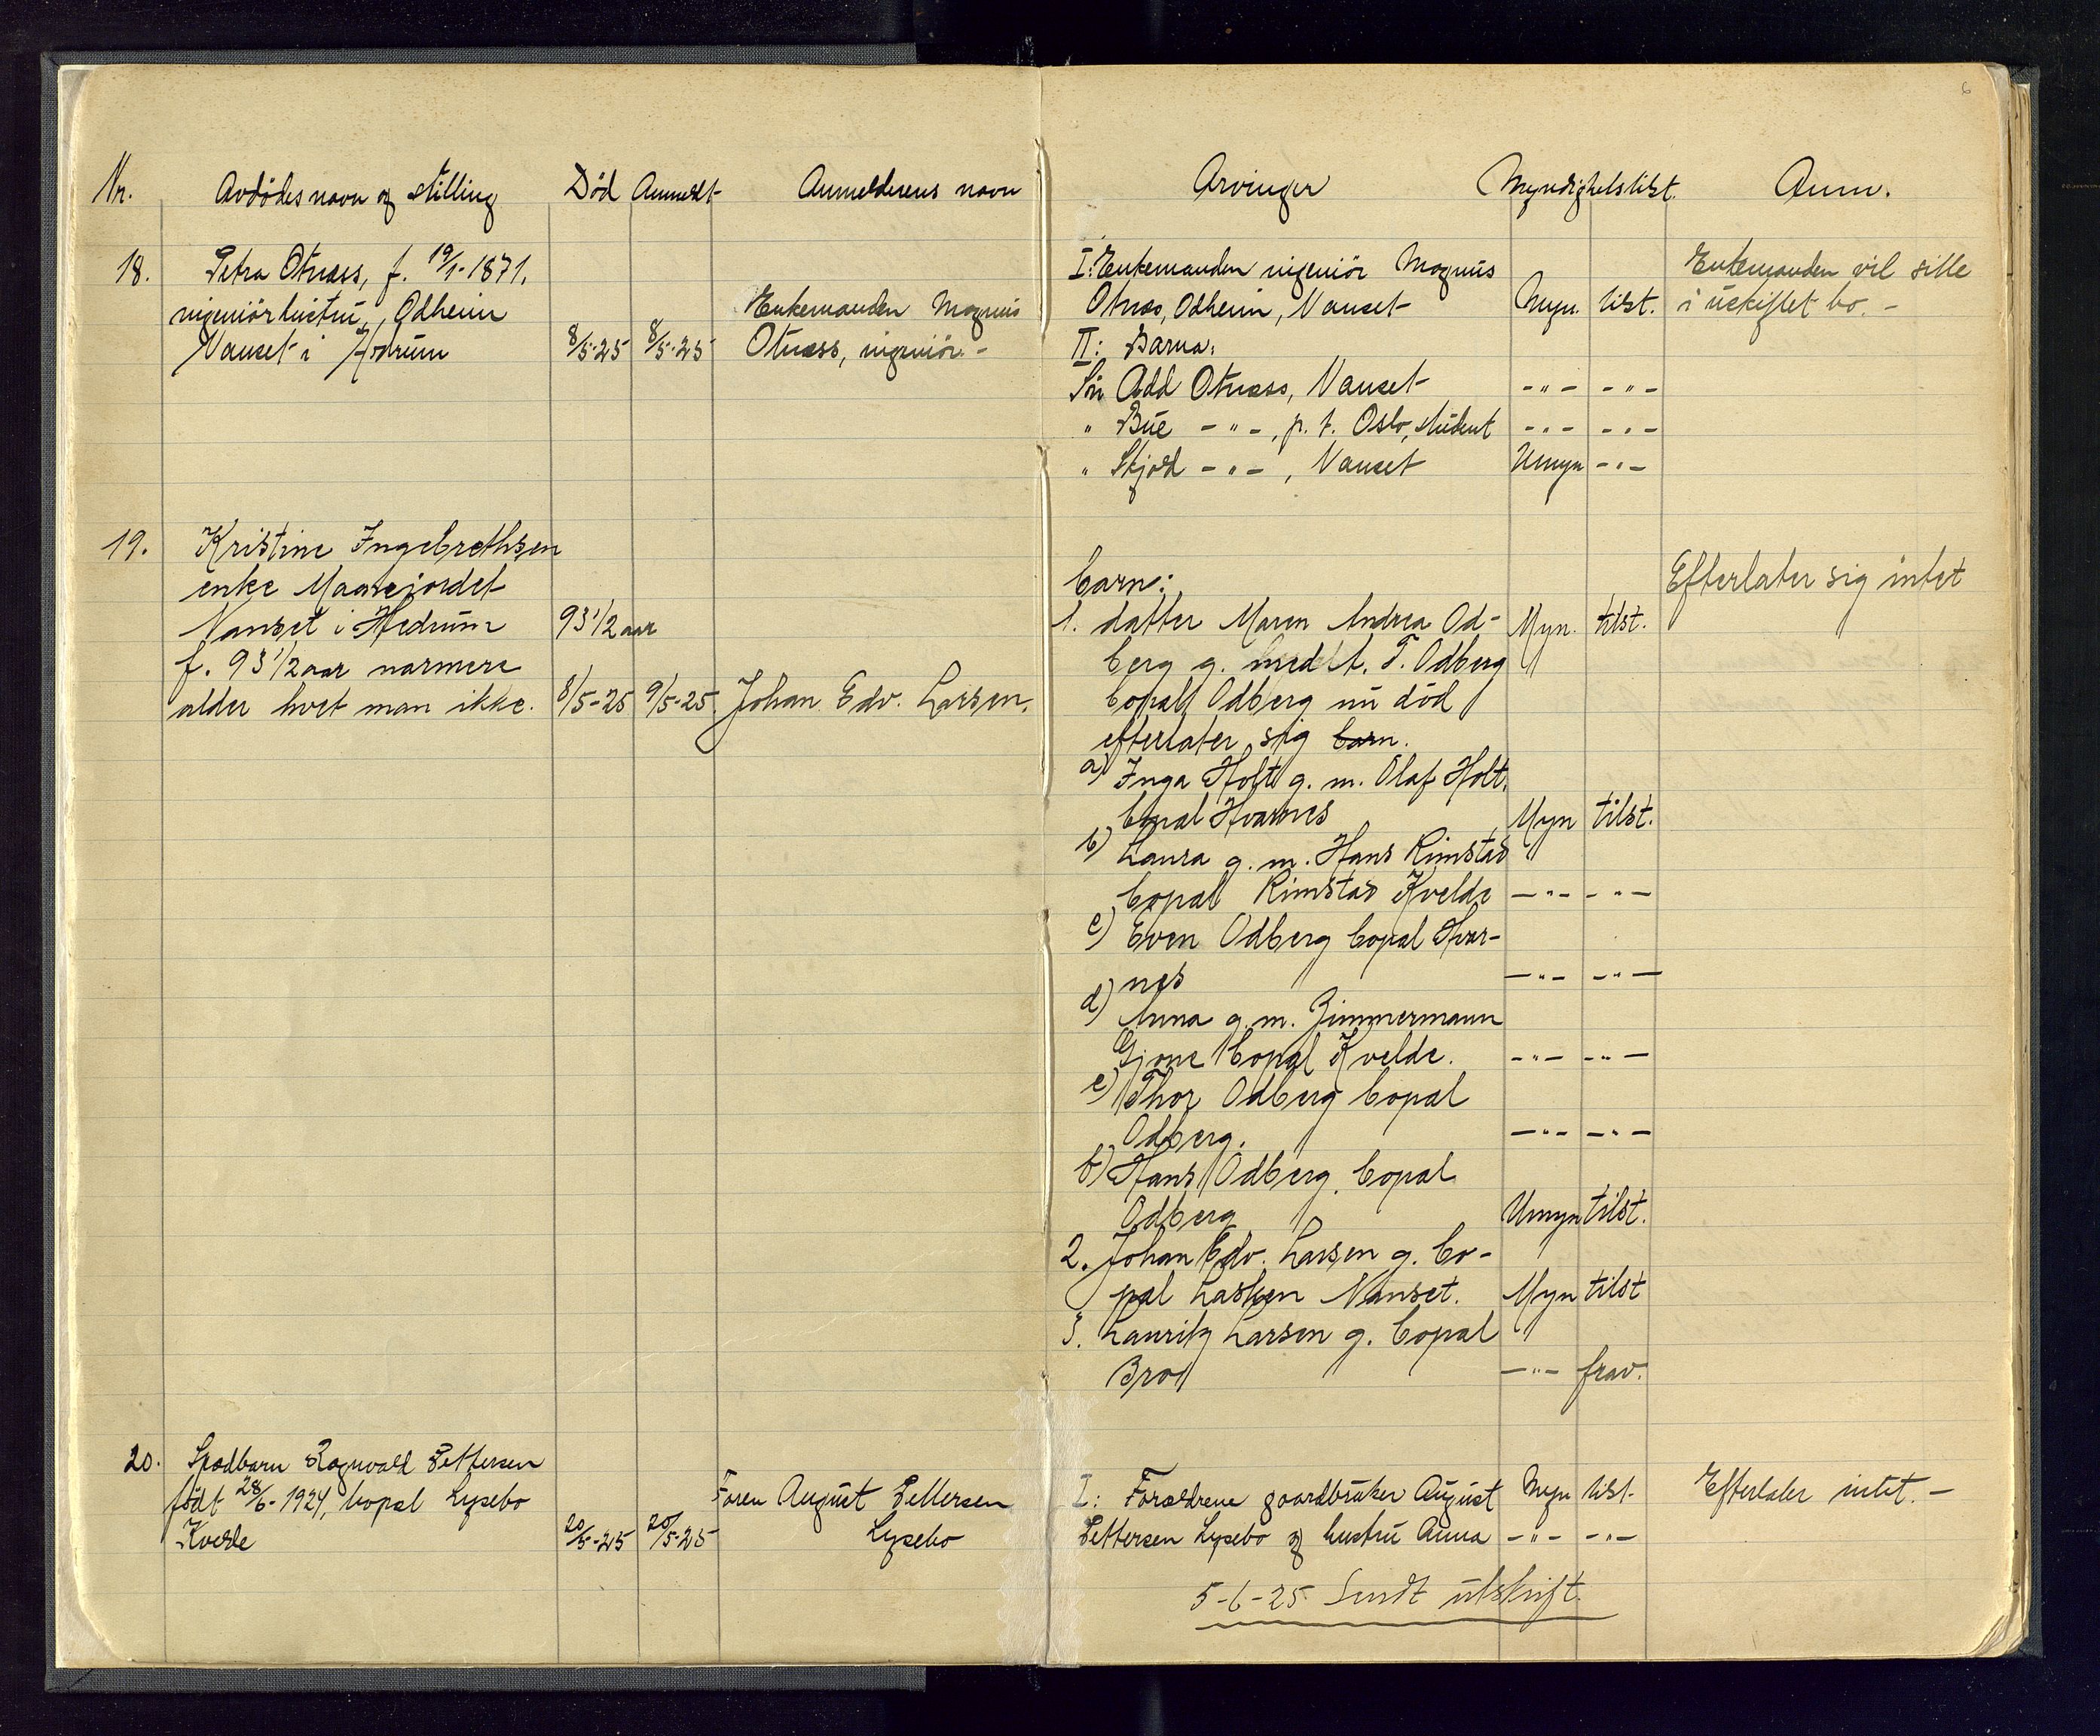 6
Nr. Avdødes navn og stilling Død Anmeldt Anmelderens navn Arvinger Myndighetstilst. Anm.
18. Petra Otnæss, f. 19/1-1871.
ingeniørhustru, Odheim
Nanset i Hedrum 8/5-25 8/5-25
Enkemanden Magnus
Otnæss, ingeniør. -
I: Enkemanden ingeniør Magnus
Otnæs, Odheim, Nanset Myn. tilst.
II: Barna:
Søn Odd Otnæss, Nanset -"- -"-
" Bue -"-, p. t. Oslo, student -"- -"-
" Skjold -"-, Nanset Umyn -"-
Enkemanden vil sitte
i uskiftet bo. -
19. Kristine Ingebrethsen
enke Maanejordet
Nanset i Hedrum 93 1/2 aar
f. 93 1/2 aar nærmere
alder hvet man ikke. 8/5-25 9/5-25. Johan Edv. Larsen.
barn: Efterlater sig intet
1. datter Maren Andrea Od- Myn. tilst.
berg g. med T. Odberg
bopæl Odberg nu død
efterlater sig barn.
a) Inga Holt g. m. Olaf Holt.
bopal Hvarnes Myn tilst.
b) Laura g. m. Hans Rimstad
bopal Rimstad Kvelde -"- -"-
c) Even Odberg bopal Hvar-
nes -"- -"-
d) Anna g. m. Zimmermann
Gjone bopal Kvelde. -"- -"-
e) Thor Odberg bopal
Odberg. -"- -"-
f) Hans Odberg bopal
Odberg Umyn tilst.
2. Johan Edv. Larsen g. bo-
pal Nanset. Myn tilst
3. Lauritz Larsen g. bopal
Bro -"- frav.
20. Spædbarn Ragnvald Pettersen
født 28/6-1924, bopæl Lysebo
Kvelde 20/5-25 20/5-25
Faren August Pettersen
Lysebo
I: Forældrene gaardbruker August Myn tilst.
Pettersen Lysebo og hustru Anna -"- -"-
Efterlater intet. -
5-6-25 Sendt utskrift.